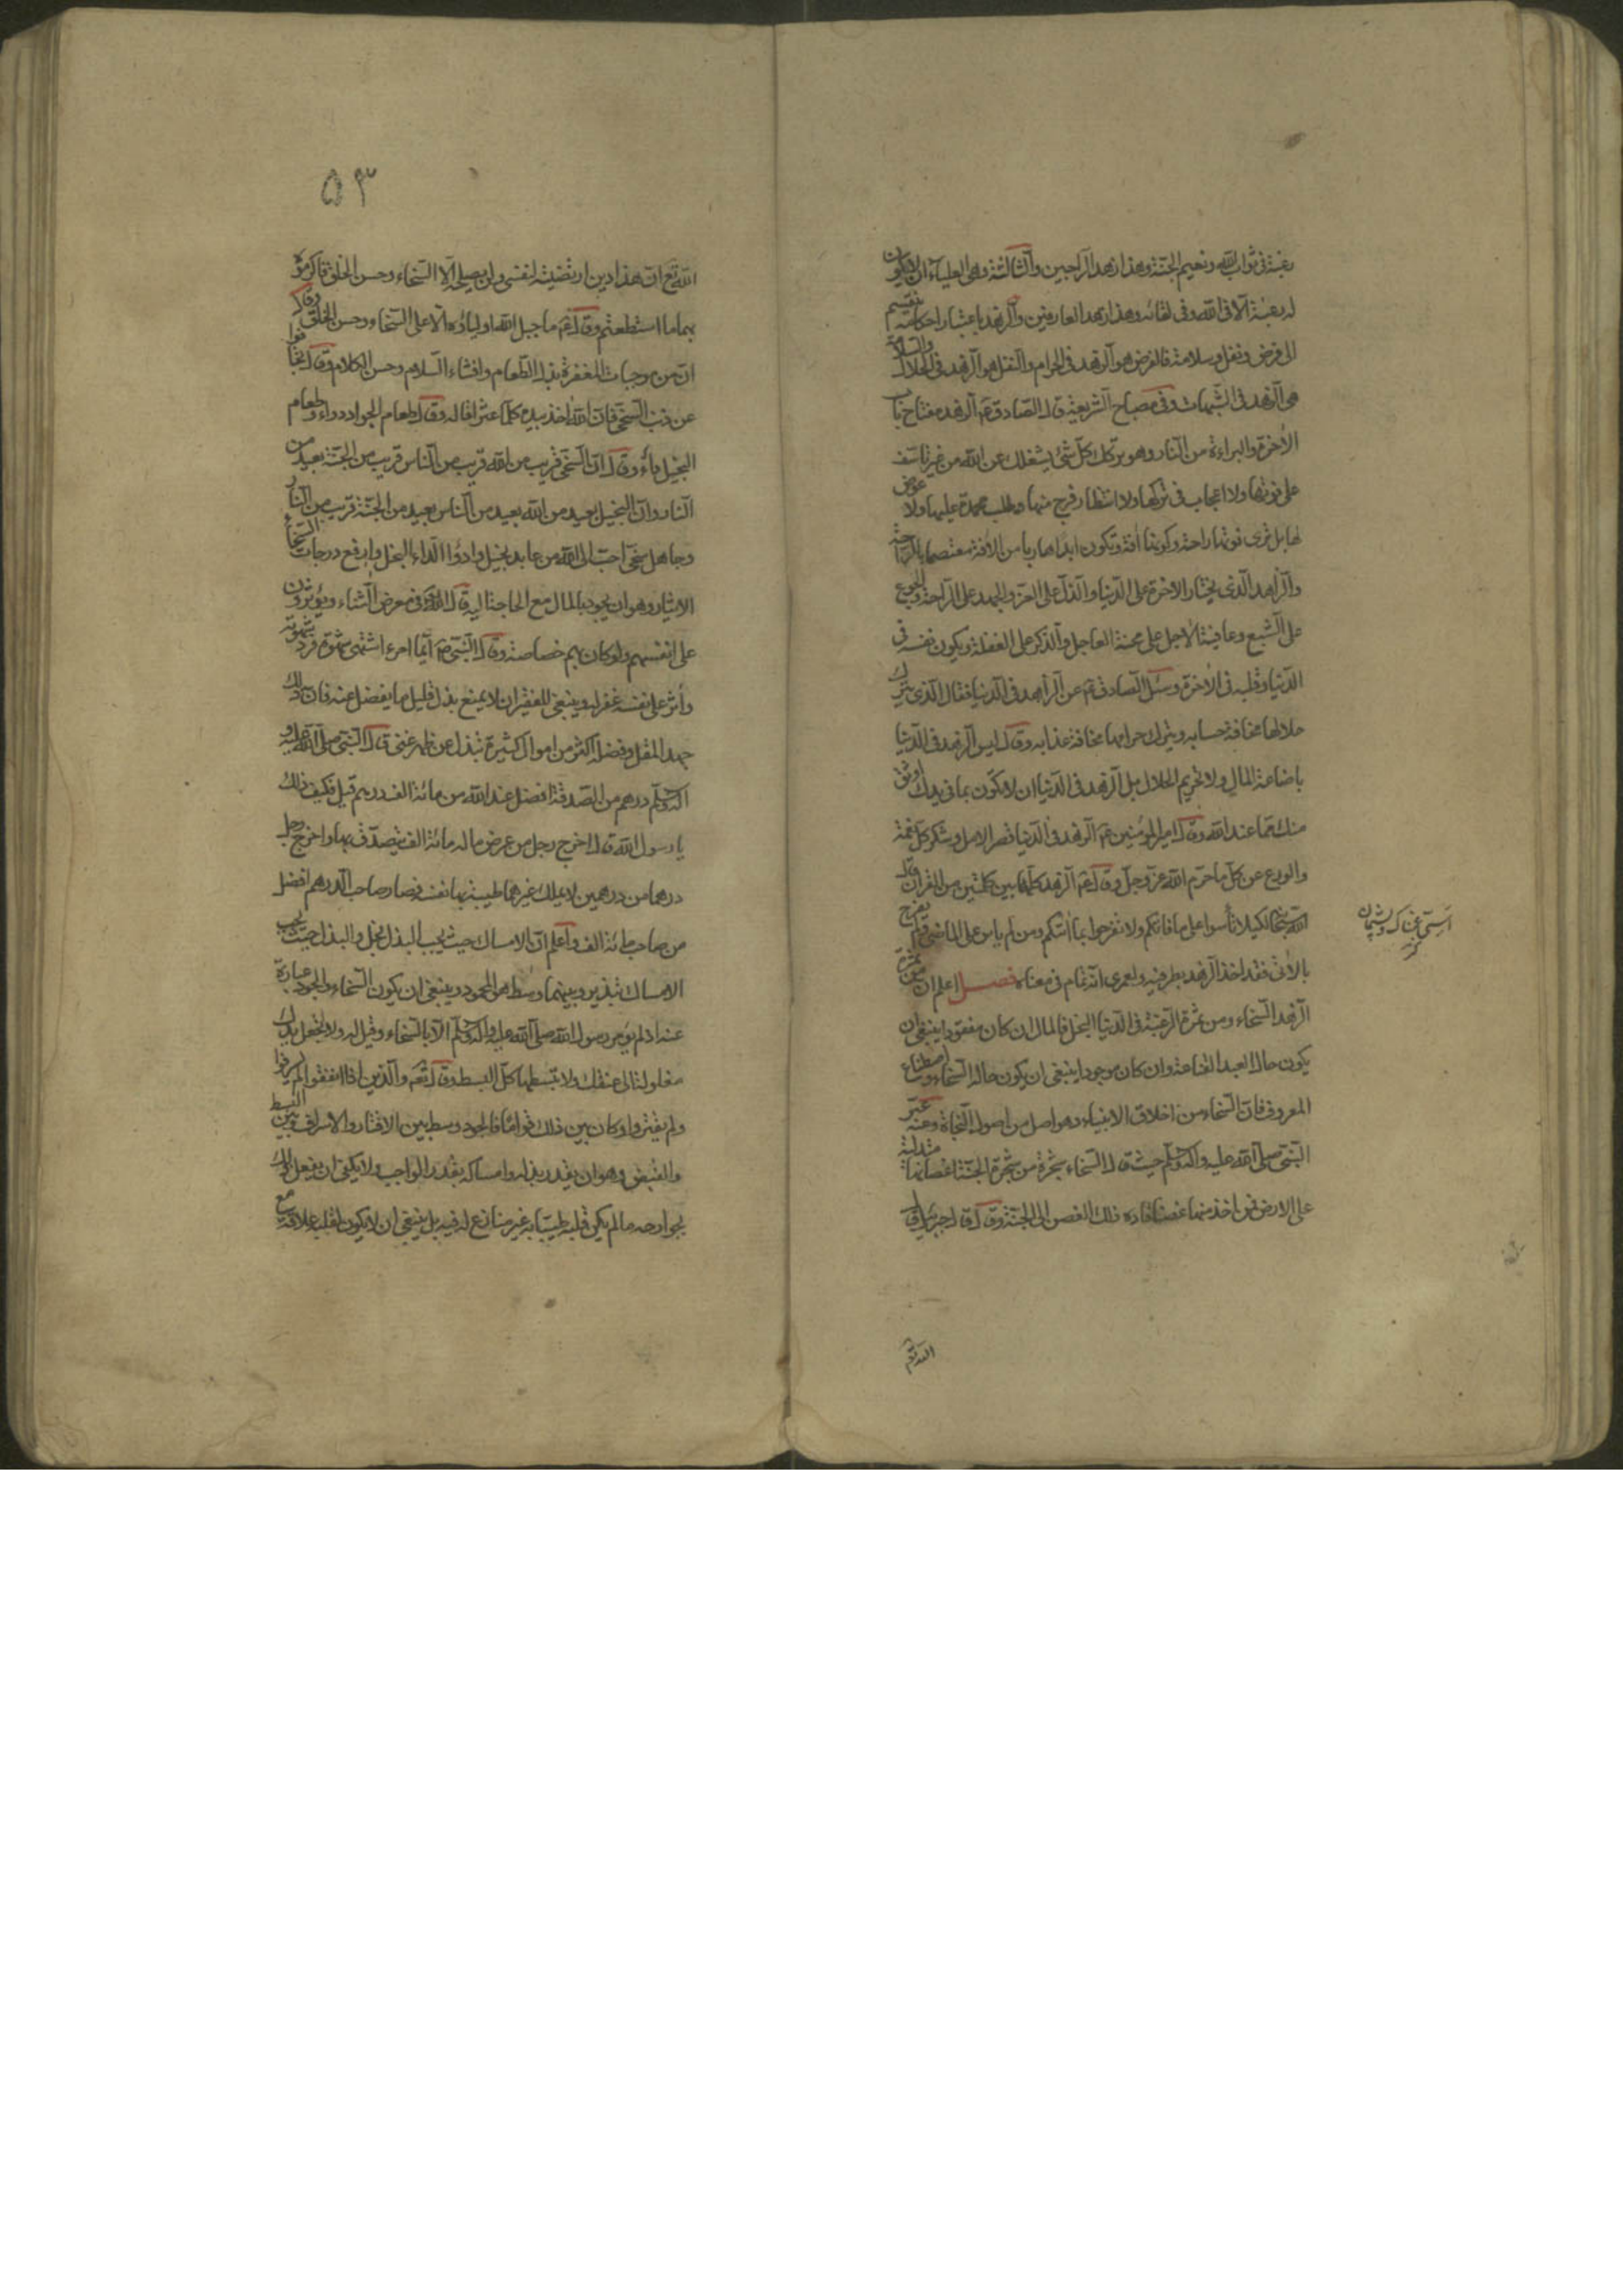 رغبة فى ثواب الله ونعيم الجنة وهذا زهد الراجين والثالثة وهى العلياء ان لا يكون
له رغبة الا فى الله وفى لقائه وهذا زهد العارفين والزهد باعتبار احكامه ينقسم
الى فرض ونفل وسلامة فالفرض هو الزهد فى الحرام والنفل هو الزهد فى الحلال والسلامة
هى الزهد فى الشبهات وفى مصباح الشريعة قال الصادق ع الزهد مفتاح باب
الاخرة والبراءة من النار وهو تركك كل شئ يشغلك عن الله من غير تاسف
على فوتها ولا اعجاب فى تركها ولا انتظار فرج منها وطلب محمدة عليها ولا عوض
لها بل ترى فوتها راحة وكونها افة وتكون ابدا هاربا من الافة معتصما بالراحة
والزاهد الذى يختار الاخرة على الدنيا والذل على العز والجهد على الراحة والجوع
على الشبع وعافية الاجل على محنة العاجل والذكر على الغفلة ويكون نفسه فى
الدنيا وقلبه فى الاخرة وسئل الصادق ع عن الزاهد فى الدنيا فقال الذى يترك
حلالها مخافة حسابه ويترك حرامها مخافة عذابه وقال ليس الزهد فى الدنيا
باضاعة المال ولا تحريم الحلال بل الزهد فى الدنيا ان لا تكون بما فى يدك اوثق
منك مما عند الله وقال امير المؤمنين ع الزهد فى الدنيا قصر الامل وشكر كل نعمة
والورع عن كل ما حرم الله عز وجل وقال ع الزهد كله بين كلمتين من القران قال
الله سبحانه لكيلا تأسوا على ما فاتكم ولا تفرحوا بما اتيكم ومن لم ياس على الماضى ولم يفرح
بالاتى فقد اخذ الزهد بطرفيه ولعمرى انه تمام فى معناه فصل اعلم ان من ثمرة
الزهد السخاء ومن ثمرة الرغبة فى الدنيا البخل فالمال ان كان مفقودا ينبغى ان
يكون حال العبد القناعة وان كان موجودا ينبغى ان يكون حاله السخاء واصطناع
المعروف فان السخاء من اخلاق الانبياء وهو اصل من اصول النجاة وعنه عبّر
النبى صلى الله عليه واله وسلم حيث قال السخاء شجرة من شجرة الجنة اغصانها متدلية
على الارض فمن اخذ منها غصنا قاده ذلك الغصن الى الجنة وقال قال جبرئيل قال
الله تع
۵۳
الله تع ان هذا دين ارتضيته لنفسى ولن يصلحه الا السخاء وحسن الخلق فاكرموه
بهما ما استطعتم وقال ع ما جبل الله اولياؤه الا على السخاء وحسن الخلق وقال
ان من موجبات المغفرة بذل الطعام وافشاء السلام وحسن الكلام وقال تجافوا
عن ذنب السخى فان الله اخذ بيده كلما عثر اقاله وقال طعام الجواد دواء وطعام
البخيل داء وقال ان السخى قريب من الله قريب من الناس قريب من الجنة بعيد من
النار وان البخيل بعيد من الله بعيد من الناس بعيد من الجنة قريب من النار
وجاهل سخى احب الى الله من عابد بخيل وادوأ الداء البخل وارفع درجات السخاء
الايثار وهو ان يجود بالمال مع الحاجة اليه قال الله تع فى معرض الثناء ويؤثرون
على انفسهم ولو كان بهم خصاصة وقال النبى ص ايما امرء اشتهى شهوة فرد شهوته
وأثر على نفسه غفر له وينبغى للفقير ان لا يمنع بذل قليل ما يفضل عنه فان ذلك
جهد المقل وفضله اكثر من اموال كثيرة تبذل عن ظهر غنى قال النبى صلى الله عليه و
اله وسلم درهم من الصدقة افضل عند الله من مائة الف درهم قيل فكيف ذلك
يا رسول الله قال اخرج رجل من عرض ماله مائة الف يتصدق بها واخرج رجل
درهما من درهمين لا يملك غيرهما طيبة بها نفسه فصار صاحب الدرهم افضل
من صاحب مائة الف واعلم ان الامساك حيث يجب البذل بخل والبذل حيث يجب
الامساك تبذير وبينهما وسط هو المحمود وينبغى ان يكون السخاء والجود عبارة
عنه اذ لم يؤمر رسول الله صلى الله عليه واله وسلم الا بالسخاء وقيل له ولا تجعل يدك
مغلولة الى عنقك ولا تبسطها كل البسط وقال تع والذين اذا انفقوا لم يسرفوا
ولم يقتروا وكان بين ذلك قواما فالجود وسط بين الاقتار والاسراف وبين البسط
والقبض وهو ان يقدر بذله وامساكه بقدر الواجب ولا يكفى ان يفعل ذلك
بجوارحه ما لم يكن قلبه طيبا به غير منازع له فيه بل ينبغى ان لا يكون لقلبه علاقة مع